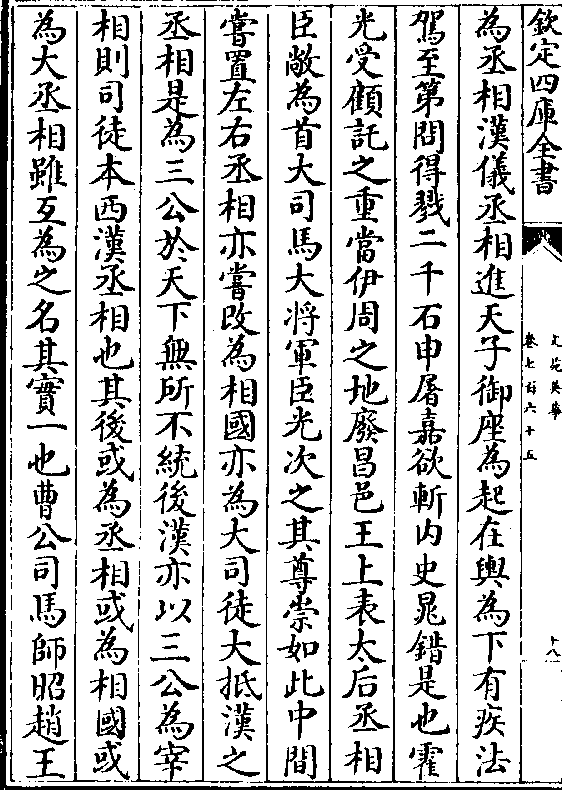 欽定四庫全書
文苑英華
卷七百六十五
十八
為丞相漢儀丞相進天子御座為起在輿為下有疾法
駕至第問得戮二千石申屠嘉欲斬内史晁錯是也霍
光受顧託之重當伊周之地廢昌邑王上表太后丞相
臣敞為首大司馬大將軍臣光次之其尊崇如此中間
嘗置左右丞相亦嘗改為相國亦為大司徒大抵漢之
丞相是為三公於天下無所不統後漢亦以三公為宰
相則司徒本西漢丞相也其後或為丞相或為相國或
為大丞相雖互為之名其實一也曹公司馬師昭趙王